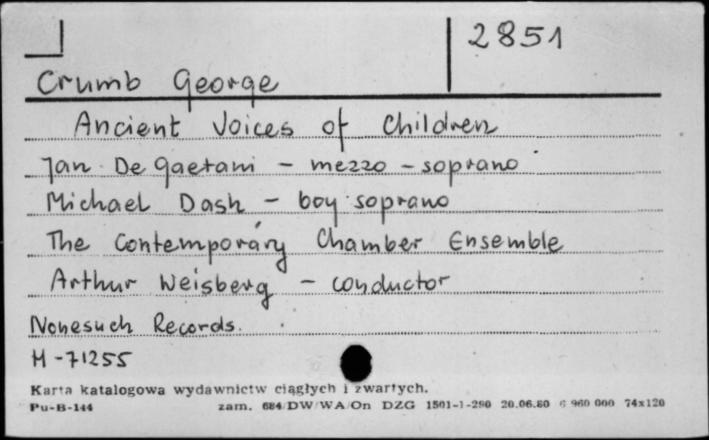 2851
Crumb George
Ancient Voices of Children
Jan De Gaetani - mezzo-soprano
Michael Dash - boy soprano
The Contemporary Chamber Ensemble
Arthur Weisberg - conductor
Nonesuch Records.
H-71255
Karta katalogowa wydawnictw ciągłych i zwartych.
Pu-B-144 zam. 684/DW/WA/On DZG 1501-1-290 20.06.80 6 960 000 74x120